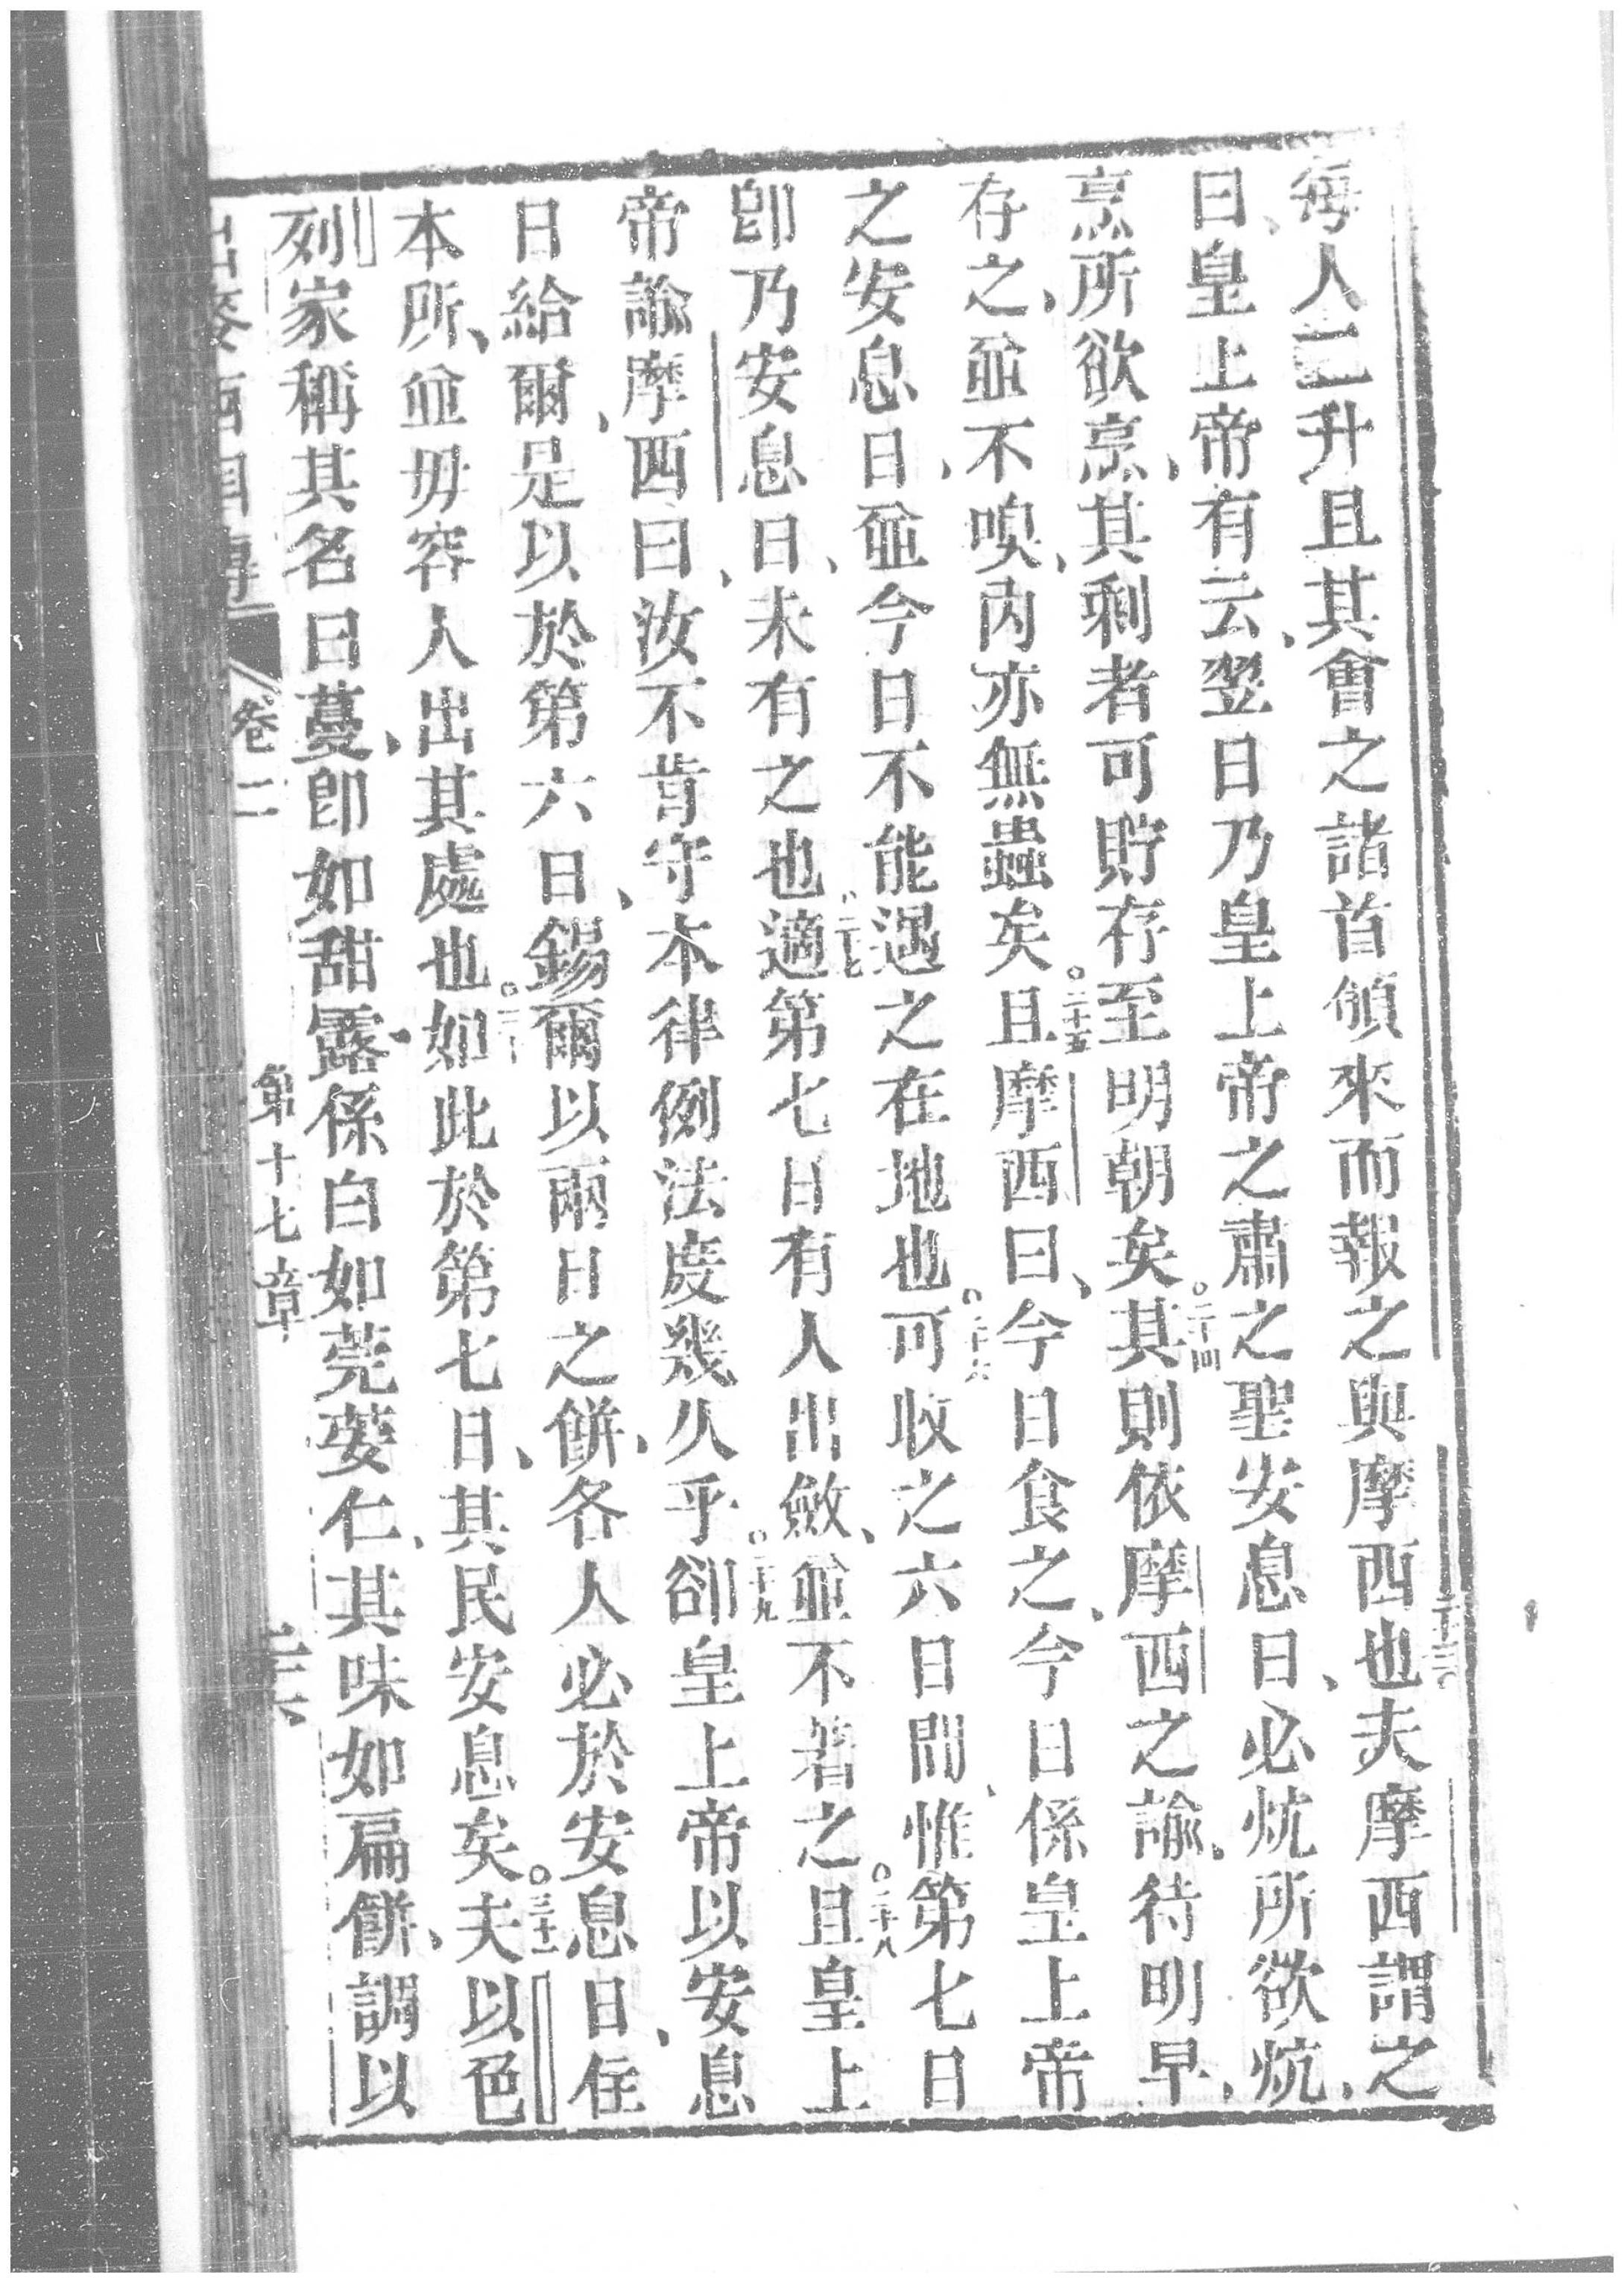 每人二升且其會之諸首領來而報之與摩西也。二十三夫摩西謂之
曰、皇上帝有云、翌日乃皇上帝之肅之聖安息日、必炕所欲炕、
烹所欲烹、其剩者可貯存至明朝矣。二十四其則依摩西之諭、待明早、
存之、並不嗅、內亦無蟲矣。二十五且摩西曰、今日食之、今日係皇上帝
之安息日、並今日不能遇之在地也。二十六可收之六日間、惟第七日
卽乃安息日、未有之也。二十七適第七日有人出斂、並不着之。二十八且皇上
帝諭摩西曰、汝不肯守本律例法度幾久乎。二十九卻皇上帝以安息
日給爾、是以於第六日、錫爾以兩日之餅、各人必於安息日、住
本所、並毋容人出其處也。三十如此於第七日、其民安息矣。三十一夫以色
列家稱其名曰蔓、卽如甜露、係白如莞荽仁、其味如扁餅、調以
卷二 第十七章